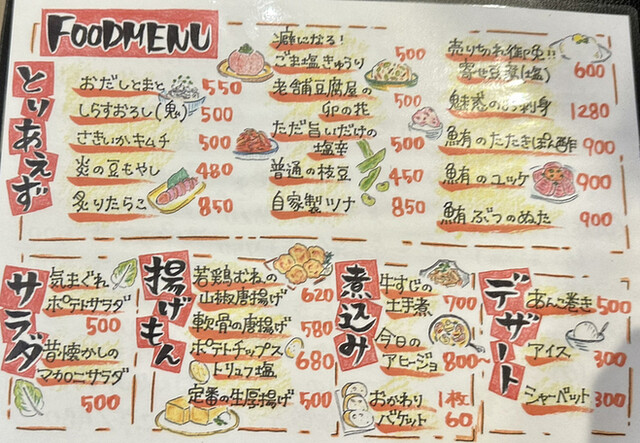 FOODMENU
とりあえず
おだしとまと 550
しらすおろし(鬼) 500
さきいかキムチ 500
炎の豆もやし 480
炙りたらこ 850
癖になる!
ごま塩きゅうり 500
老舗豆腐屋の
卯の花 500
ただ旨いだけの
塩辛 500
普通の枝豆 450
自家製ツナ 850
売りきれ御免!!
寄せ豆腐(塩) 600
魅惑のお刺身 1280
鮪のたたきぽん酢 900
鮪のユッケ 900
鮪ぶつのぬた 900
サラダ
気まぐれ
ポテトサラダ
500
昔懐かしの
マカロニサラダ
500
揚げもん
若鶏むねの
山椒唐揚げ 620
軟骨の唐揚げ 580
ポテトチップス
トリュフ塩 680
定番の生厚揚げ 500
煮込み
牛すじの
土手煮 700
今日の
アヒージョ 800
おかわり 1枚
バゲット 60
デザート
あんこ巻き 500
アイス 300
シャーベット 300